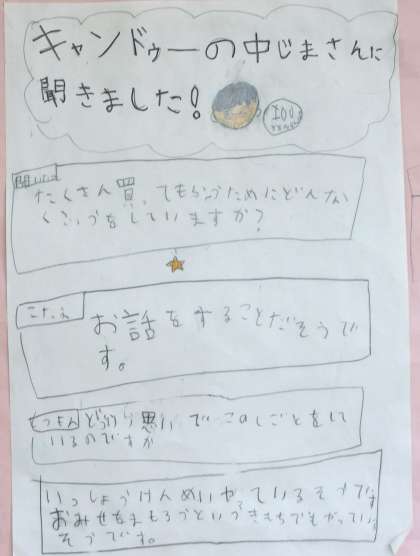 キャンドゥーの中じまさんに
聞きました!
100
たくさん買ってもらうためにどんな
くふうをしていますか?
こたえ
お話をすることだそうで
す。
しつもん
どういう思いでこのしごとをして
いるのですか
いっしょうけんめいやっているそうです
おみせをまもろうというきもちでもやってい
そうです。